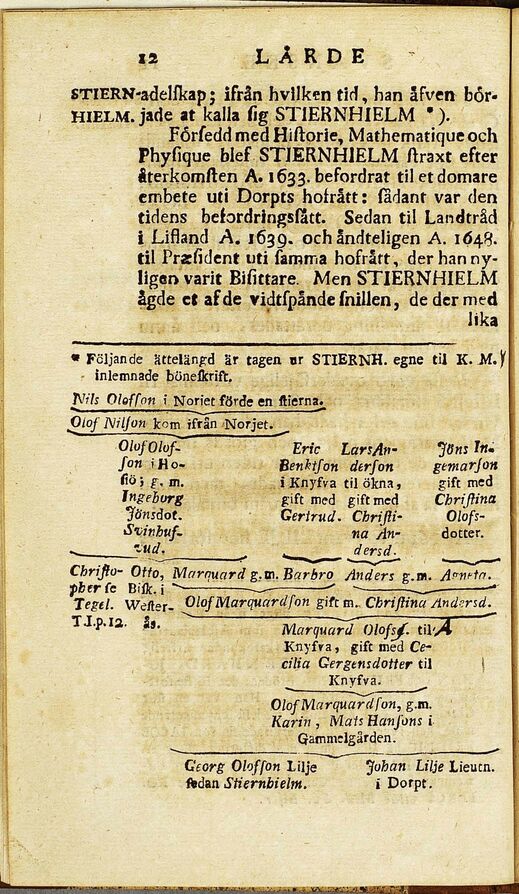 12 LÅRDE
STIERN-adelſkap; ifrån hvilken tid, han åfven bór-
HIELM. jade at kalla ſig STIERNHIELM *).
Fórſedd med Hiſtorie, Mathematique och
Phyſique blef STIERNHIELM ſtraxt efter
återkomſten A. 1633. befordrat til et domare
embete uti Dorpts hofrått: ſådant var den
tidens befordringsſått. Sedan til Landtråd
i Lifland A. 1639. och åndteligen A. 1648.
til Præſident uti ſamma hofrått, der han ny-
ligen varit Biſittare. Men STIERNHIELM
ågde et af de vidtſpånde ſnillen, de der med
lika
* Följande ättelängd är tagen ur STIERNH. egne til K. M.
inlemnade böneſkrift.
Nils Olofſon i Norjet förde en ſtierna.
Olof Nilſon kom ifrån Norjet.
Olof Olof-
ſon i Ho-
ſiö; g. m.
Ingeborg
Jönsdot.
Svinhuf-
vud.
Eric
Benktſon
i Knyfva
gift med
Gertrud.
Lars An-
derſon
til ökna,
gift med
Chriſti-
na An-
dersd.
Jöns In-
gemarſon
gift med
Chriſtina
Olofs-
dotter.
Chriſto-
pher ſe
Tegel.
T.I.p.12.
Otto,
Biſk. i
Weſter-
ås.
Marquard g.m. Barbro Anders g.m. Agneta.
Olof Marquardſon gift m. Chriſtina Andersd.
Marquard Olofsſ. til
Knyfva, gift med Ce-
cilia Gergensdotter til
Knyfva.
Olof Marquardſon, g.m.
Karin, Mats Hanſons i
Gammelgården.
Georg Olofſon Lilje
ſedan Stiernhielm.
Johan Lilje Lieutn.
i Dorpt.